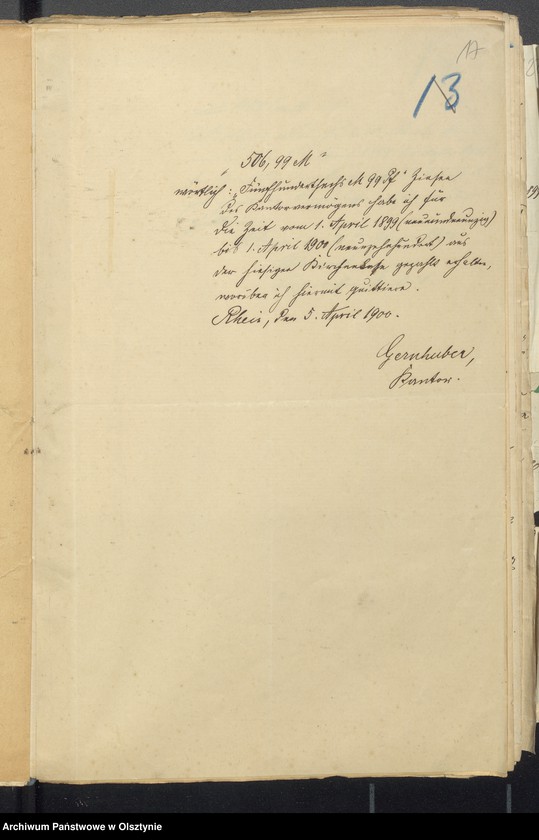 17
13
„ 506,99 M “
wörtlich: „Fünfhundertsechs M 99 Pf“ Zinsen
des Kantorvermögens habe ich für
die Zeit vom 1. April 1899 (neunundneunzig)
bis 1. April 1900 (neunzehnhundert) aus
der hiesigen Kirchenkasse gezahlt erhalten,
worüber ich hiermit quittiere.
Rhein, den 5. April 1900.
Gernhuber,
Kantor.
Archiwum Państwowe w Olsztynie